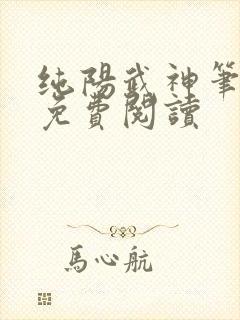 純陽武神筆
免費閱讀
馬心航